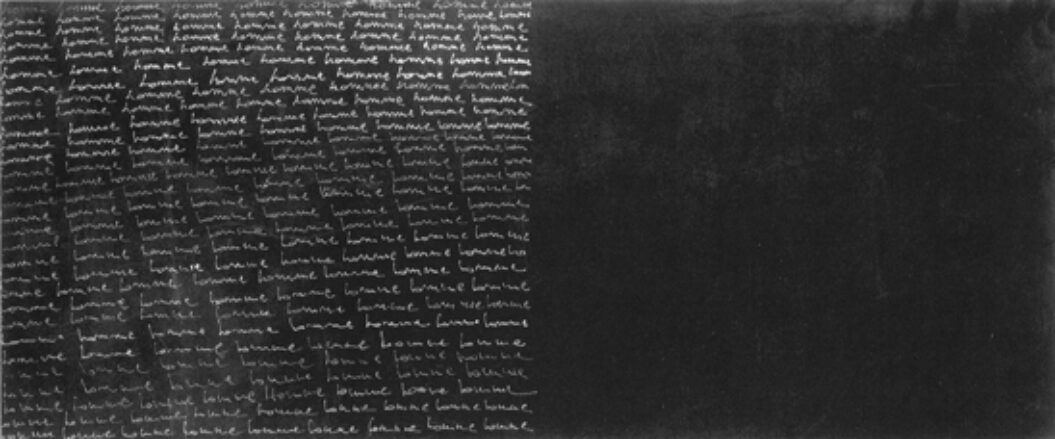 homme homme homme homme homme homme homme homme
homme homme homme homme homme homme homme homme
homme homme homme homme homme homme homme homme
homme homme homme homme homme homme homme homme
homme homme homme homme homme homme homme homme
homme homme homme homme homme homme homme homme
homme homme homme homme homme homme homme
homme homme homme homme homme homme homme homme
homme homme homme homme homme homme homme homme
homme homme homme homme homme homme homme homme
homme homme homme homme homme homme homme homme
homme homme homme homme homme homme homme homme
homme homme homme homme homme homme homme homme
homme homme homme homme homme homme homme homme
homme homme homme homme homme homme homme homme
homme homme homme homme homme homme homme homme
homme homme homme homme homme homme homme
homme homme homme homme homme homme homme
homme homme homme homme homme homme homme
homme homme homme homme homme homme homme
homme homme homme homme homme homme homme
homme homme homme homme homme homme homme
homme homme homme homme homme homme homme
homme homme homme homme homme homme homme
homme homme homme homme homme homme homme
homme homme homme homme homme homme homme
homme homme homme homme homme homme homme
homme homme homme homme homme homme homme
homme homme homme homme homme homme homme
homme homme homme homme homme homme homme
homme homme homme homme homme homme homme homme
homme homme homme homme homme homme homme homme